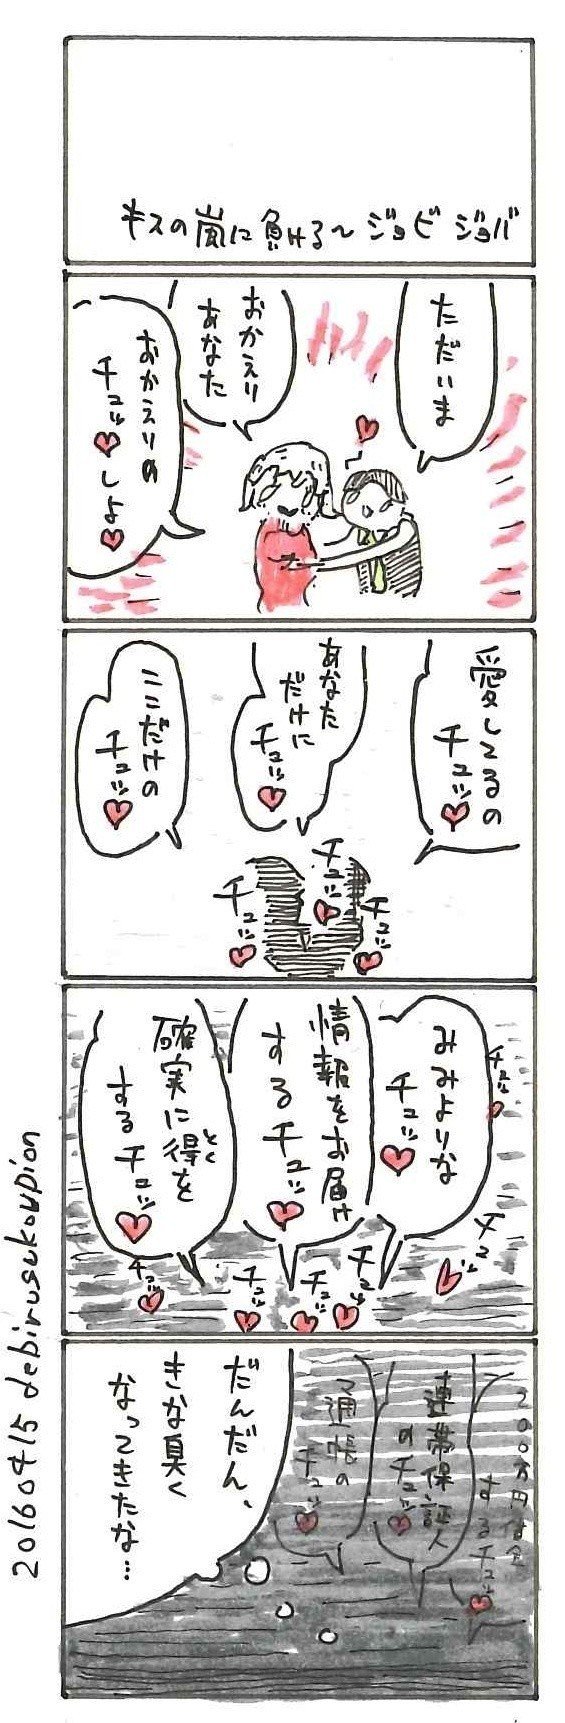 キスの嵐に負ける～ジョビジョバ
ただいま
おかえり
あなた
おかえりの
チュッ♥しよ♥
愛してるの
チュッ♥
あなた
だけに
チュッ♥
ここだけの
チュッ♥
チュッ♥
チュッ♥
チュッ♥
みみよりな
チュッ♥
情報をお届け
するチュッ♥
確実に得を
とく
するチュッ♥
チュッ♥
チュッ♥
チュッ♥
チュッ♥
チュッ♥
チュッ♥
200万円借金
するチュッ♥
連帯保証人
のチュッ♥
通帳の
チュッ♥
だんだん、
きな臭く
なってきたな…
20160415 debirusukorpion